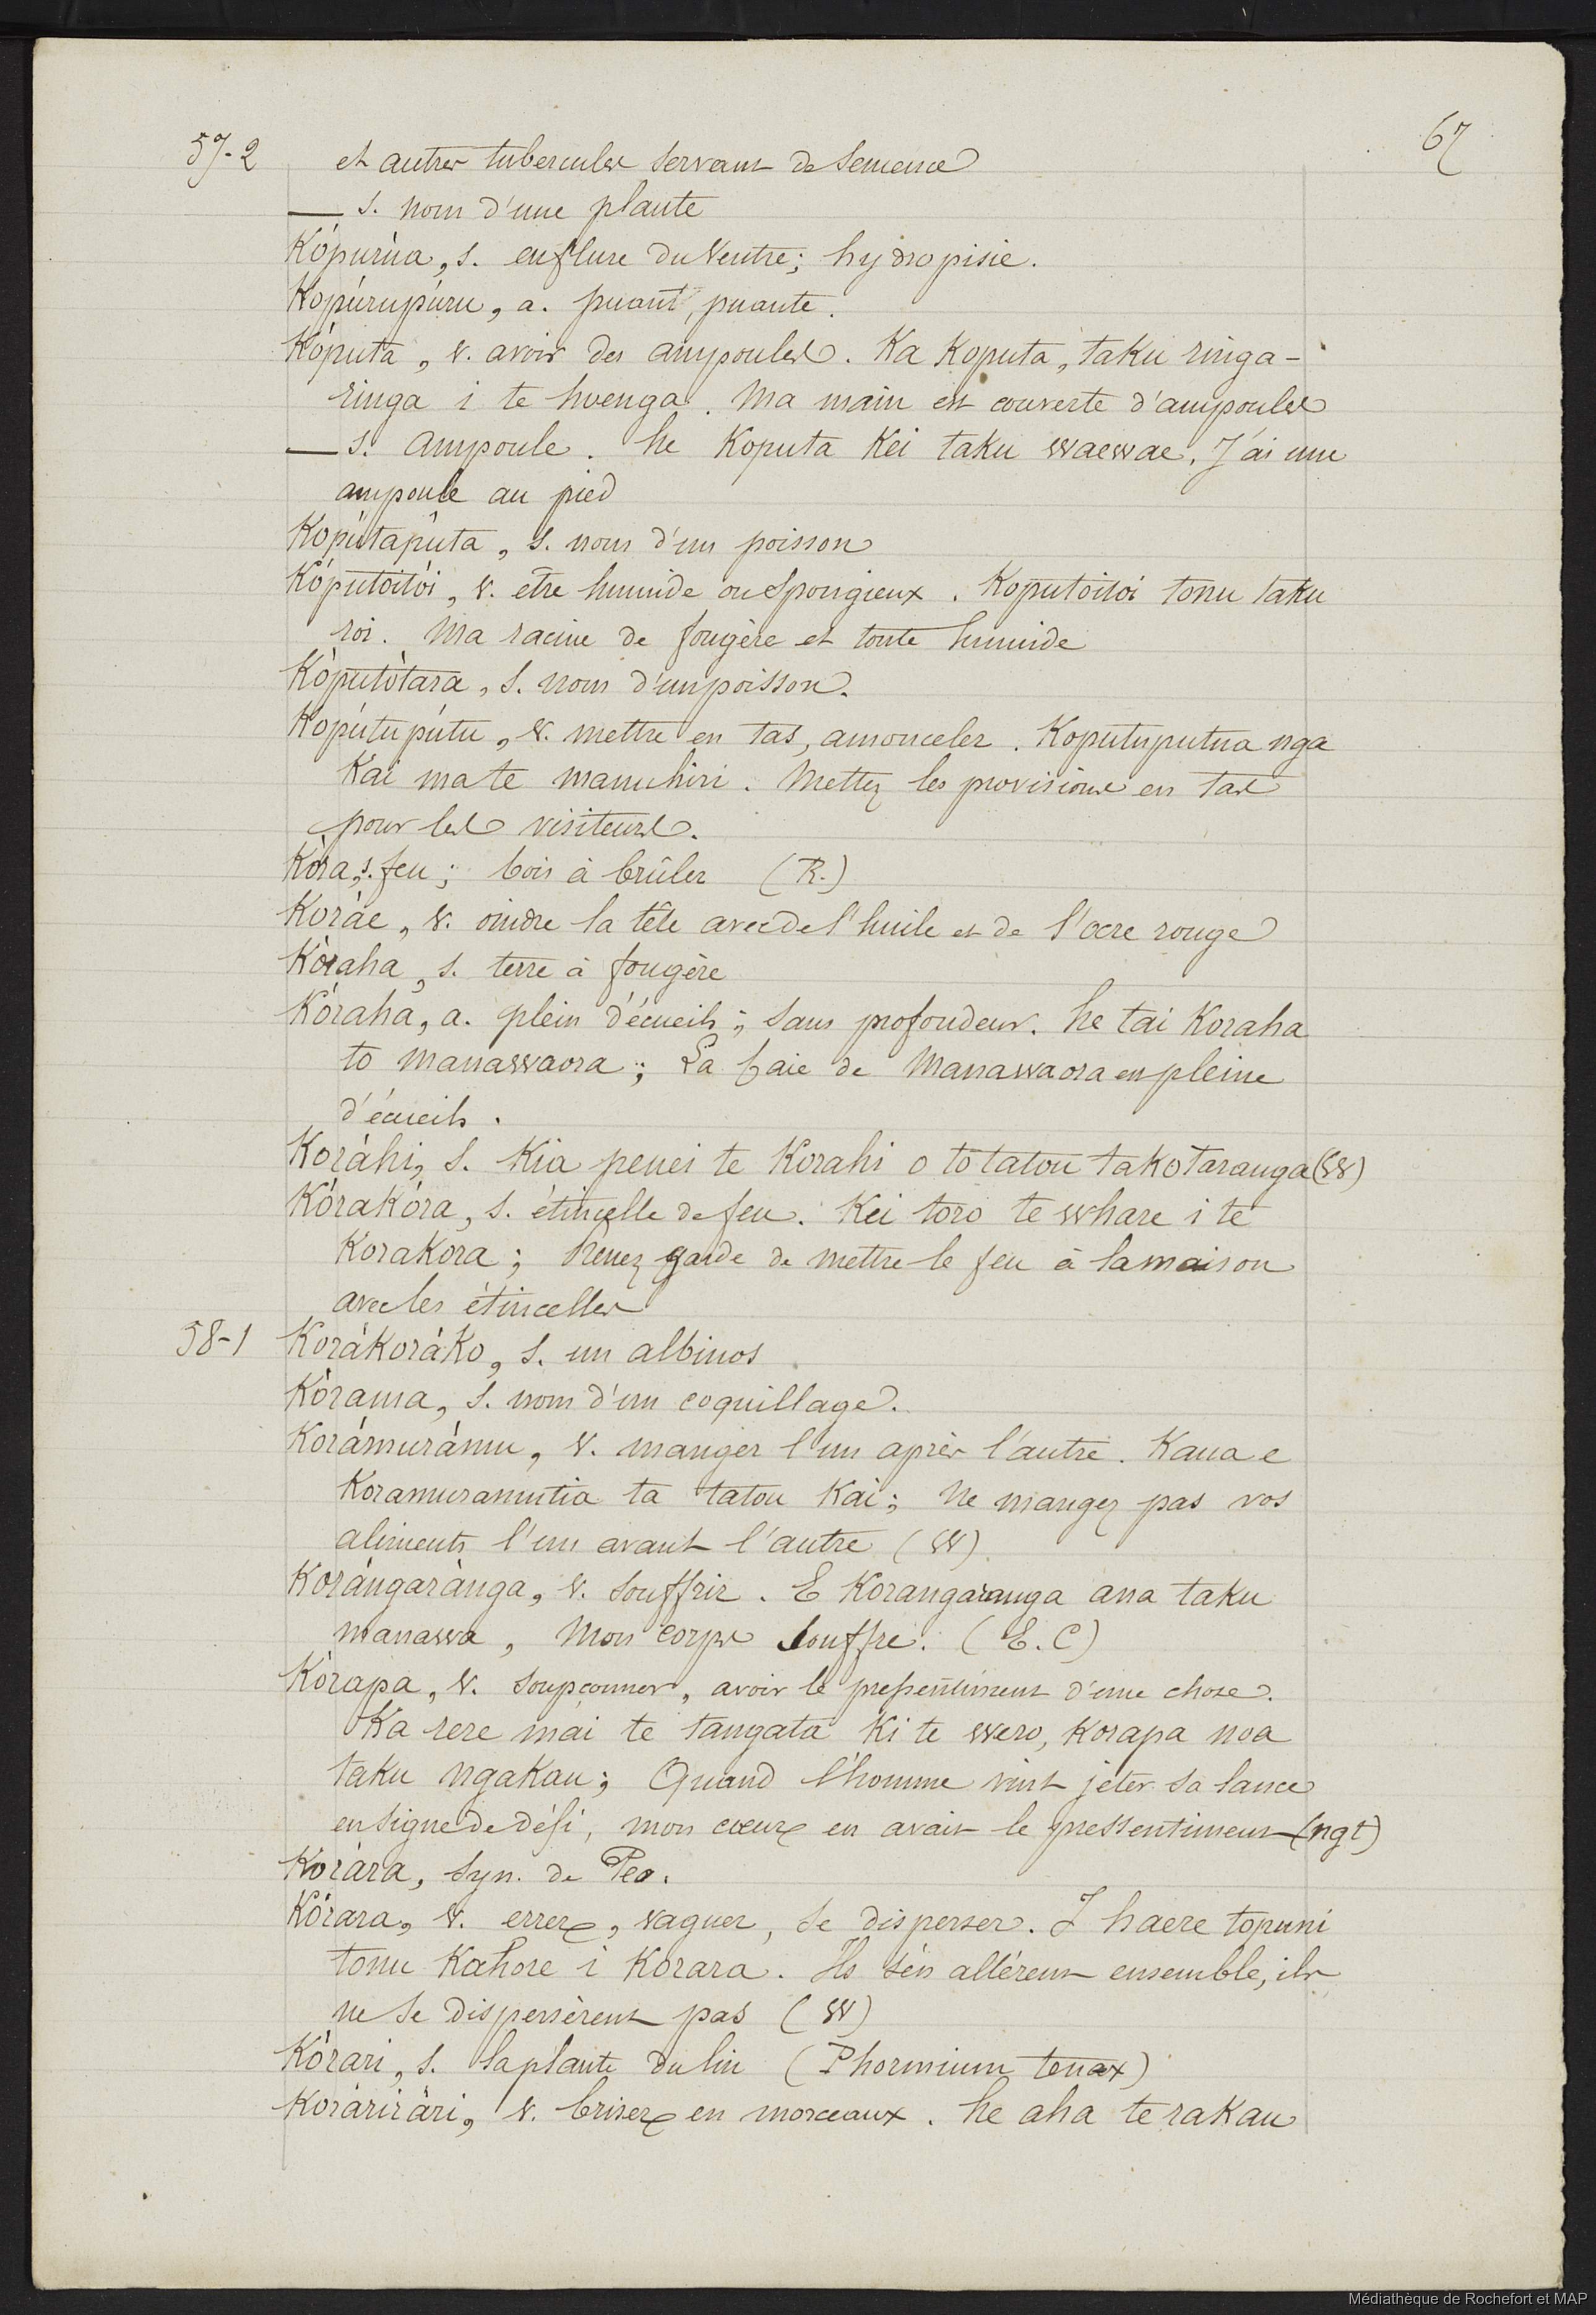 67
57-2 et autres tubercules servant de semence
— s. nom d'une plante
Kópurùa, s. enflure du ventre; hydropisie.
Kopúrupúru, a. puant, puante.
Kóputa, v. avoir des ampoules. Ka Koputa, taku ringa-
ringa i te huenga. Ma main est couverte d'ampoules
— s. ampoule. he Koputa Kei taku waewae. J'ai une
ampoule au pied
Kopútapúta, s. nom d'un poisson
Kóputoitói, v. etre humide ou spongieux. Koputoitoi tonu taku
roi. Ma racine de fougère et toute humide
Kòputòtara, s. nom d'un poisson.
Kopútupútu, v. mettre en tas, amonceler. Koputuputua nga
Kai ma te manuhiri. Mettez les provisions en tas
pour les visiteurs.
Kòra, s. feu; bois à brûler (R.)
Koráe, v. oindre la tête avec de l'huile et de l'ocre rouge
Kòraha, s. terre à fougère
Kóraha, a. plein d'écueils; sans profondeur. he tai Koraha
to manawaora; La baie de Manawaora en pleine
d'écueils.
Koráhi, s. Kia penei te Korahi o to tatou takotaranga (W)
Kórakóra, s. étincelle de feu. Kei toro te whare i te
Korakora; Prenez garde de mettre le feu à la maison
avec les étincelles
58-1 Korákoráko, s. un albinos
Kòrama, s. nom d'un coquillage.
Korámurámu, v. manger l'un après l'autre. Kaua e
Koramuramutia ta tatou Kai; Ne mangez pas vos
aliments l'un avant l'autre (W)
Korángaránga, v. souffrir. E Korangaranga ana taku
manawa, Mon corps souffre. (E.C)
Kòrapa, v. soupconner, avoir le pressentiment d'une chose.
Ka rere mai te tangata Ki te wero, Korapa noa
taku ngakau; Quand l'homme vint jeter sa lance
en signe de défi, mon cœur en avait le pressentiment (ngt)
Koràra, syn. de Pea.
Kórara, v. errer, vaguer, se disperser. I haere topuni
tonu Kahore i Korara. Ils s'en allèrent ensemble, ils
ne se dispersèrent pas (W)
Kòrari, s. la plante du lin (Phormium tenax)
Koráriràri, v. briser en morceaux. he aha te rakau
Médiathèque de Rochefort et MAP